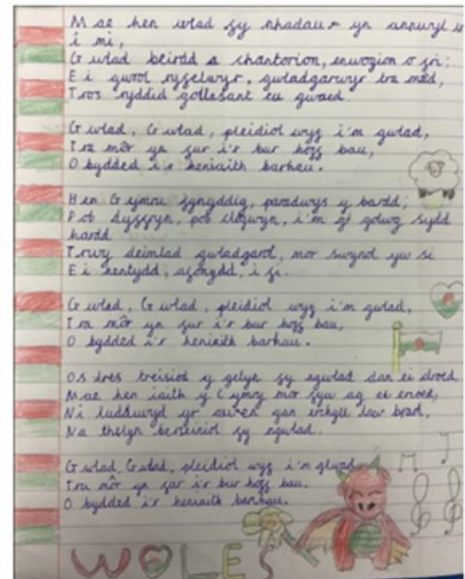 Mae hen wlad fy nhadau yn annwyl
i mi,
Gwlad beirdd a chantorion, enwogion o fri;
Ei gwrol ryfelwyr, gwladgarwyr tra mad,
Tros ryddid gollasant eu gwaed.
Gwlad, Gwlad, pleidiol wyf i'm gwlad,
Tra môr yn fur i'r bur hoff bau,
O bydded i'r heniaith barhau.
Hen Gymru fynyddig, paradwys y bardd;
Pob dyffryn, pob clogwyn, i'm golwg sydd
hardd
Trwy deimlad gwladgarol, mor swynol yw si
Ei nentydd, afonydd, i fi.
Gwlad, Gwlad, pleidiol wyf i'm gwlad,
Tra môr yn fur i'r bur hoff bau,
O bydded i'r heniaith barhau.
Os tres treisiod y gelyn fy ngwlad dan ei droed,
Mae hen iaith y Cymry mor fyw ag et erioed,
Ni luddiwyd yr awen gan erchyll law brad,
Na thelyn berseiniol fy ngwlad.
Gwlad, Gwlad, pleidiol wyf i'm glwad,
Tra môr yn fur i'r bur hoff bau,
O bydded i'r heniaith barhau.
WOLES